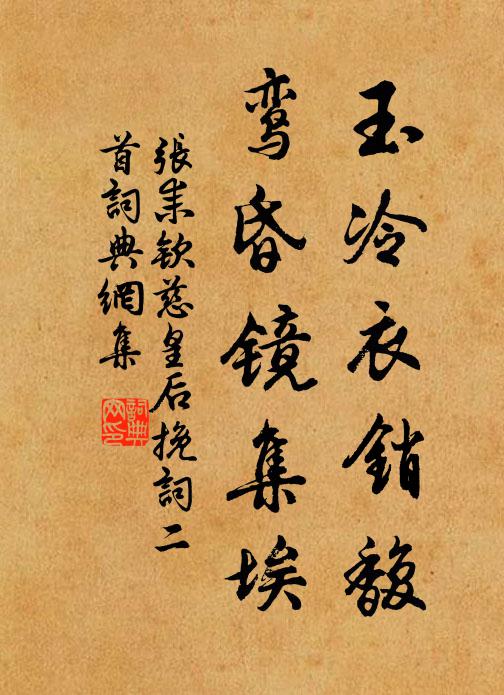 玉冷衣銷馥
鸾昏镜集埃
張耒欽慈皇后挽詞二
首詞典網集
詞典
网印